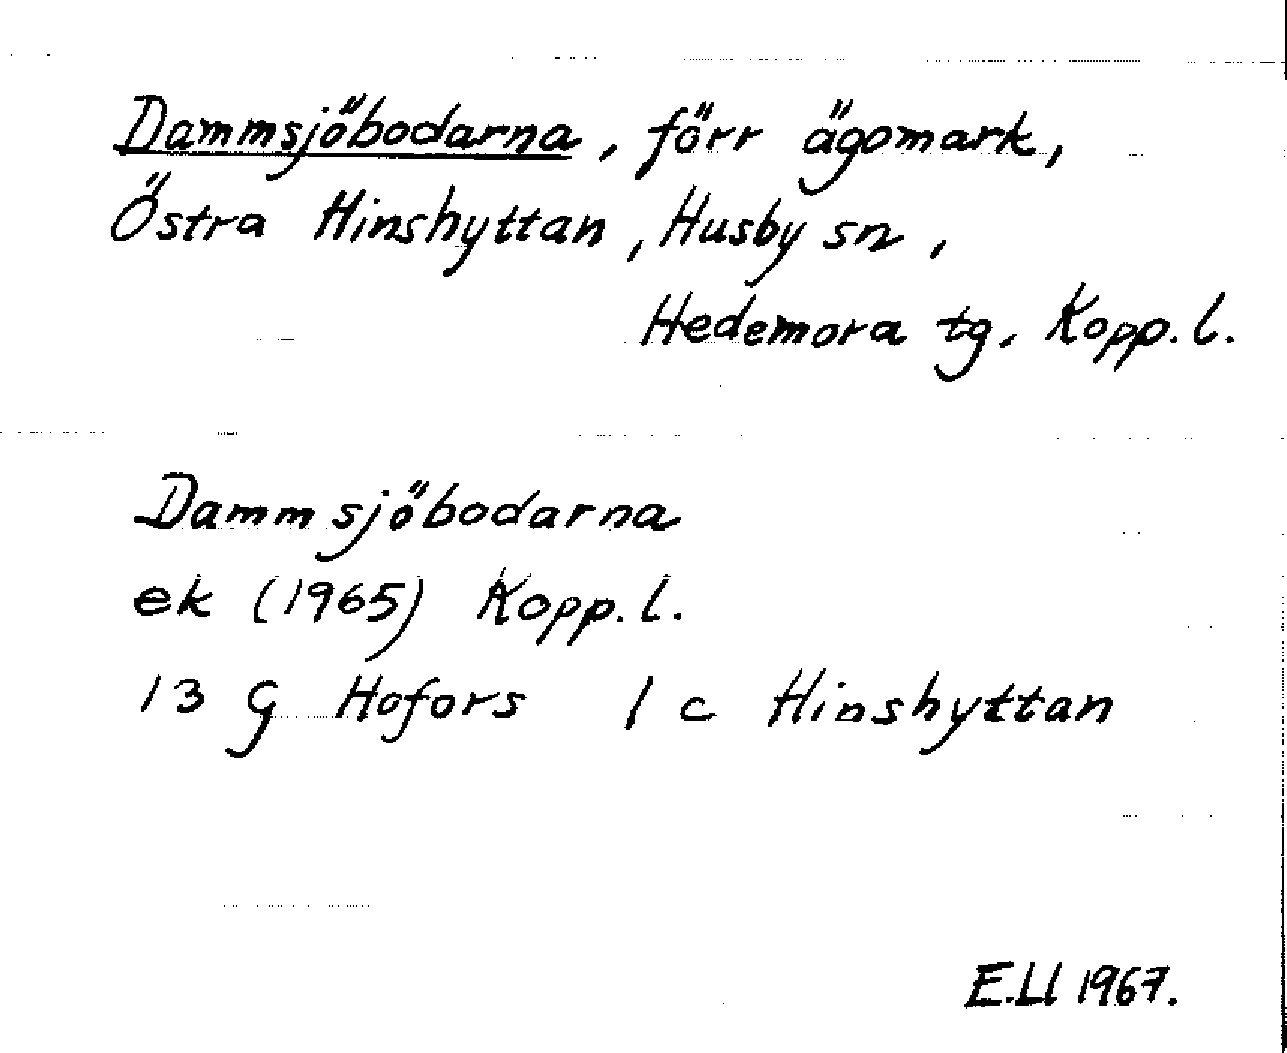 Dammsjöbodarna, förr ägomark,
Östra Hinshyttan, Husby sn,
Hedemora tg, Kopp. l.
Dammsjöbodarna
ek (1965) Kopp. l.
13 G Hofors 1 c Hinshyttan
E.Ll 1967.